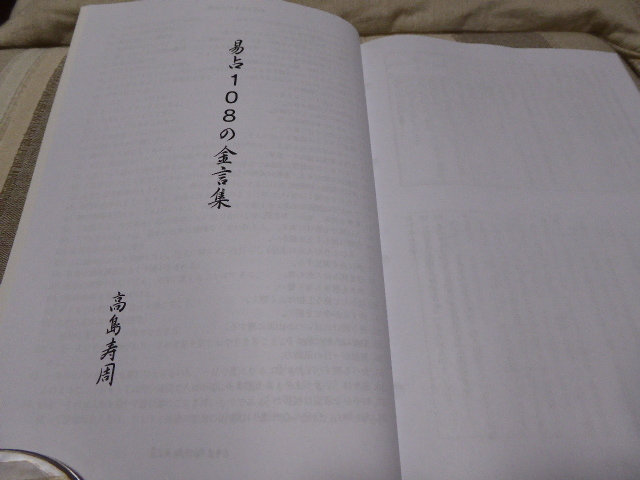 易占108の金言集
高島寿周